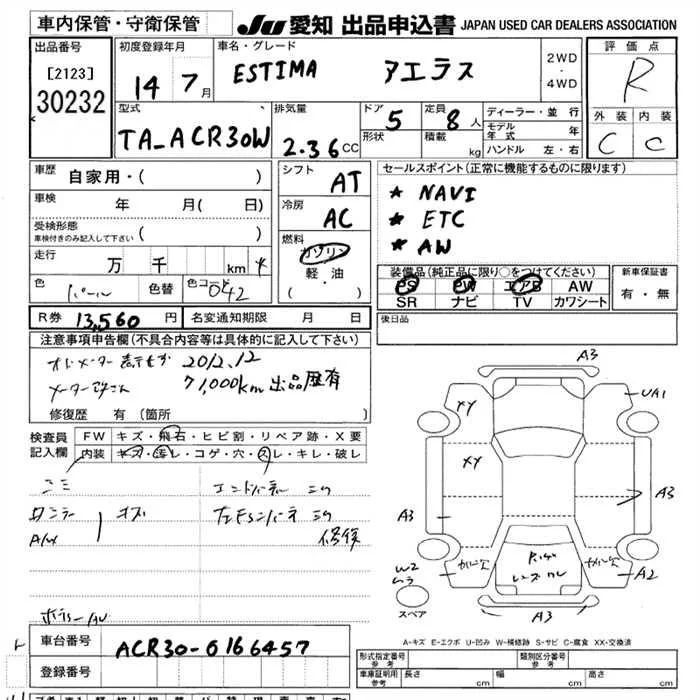 車内保管・守衛保管
JU 愛知 出品申込書 JAPAN USED CAR DEALERS ASSOCIATION
出品番号
[2123]
30232
初度登録年月
14年 7月
車名・グレード
ESTIMA アエラス
2WD
・
4WD
評価点
R
外装 内装
C C
型式
TA-ACR30W
排気量
2.36cc
ドア 5
形状
定員 8人
積載 kg
ディーラー・並行
モデル年式 年
ハンドル 左・右
車歴 自家用・( )
車検 年 月( 日)
受検形態
車検付きのみ記入して下さい ( )
走行 万 千 km
色 パール 色替 色コード 042
シフト AT
冷房 AC
燃料
ガソリン
軽・油
( ・ )
セールスポイント(正常に機能するものに限ります)
★ NAVI
★ ETC
★ AW
装備品(純正品に限り○をつけてください)
PS PW エアB AW
SR ナビ TV カワシート
新車保証書
有・無
R券 13,560円 名変通知期限 月 日
後日品
注意事項申告欄(不具合内容等は具体的に記入して下さい)
2012.12
71,000km 出品歴有
修復歴 有 (箇所 )
検査員記入欄
FW キズ・飛石・ヒビ割・リペア跡・X要
内装 キズ・汚レ・コゲ・穴・スレ・キレ・破レ
修復
A3
UA1
XY
XX
A3
A3
W2
A2
A3
スペア
A-キズ E-エクボ U-凹み W-補修跡 S-サビ C-腐食 XX-交換済
車台番号 ACR30-0166457
登録番号
形式指定番号 参考
類別区分番号 参考
車庫証明用 参考 長さ cm 幅 cm 高さ cm